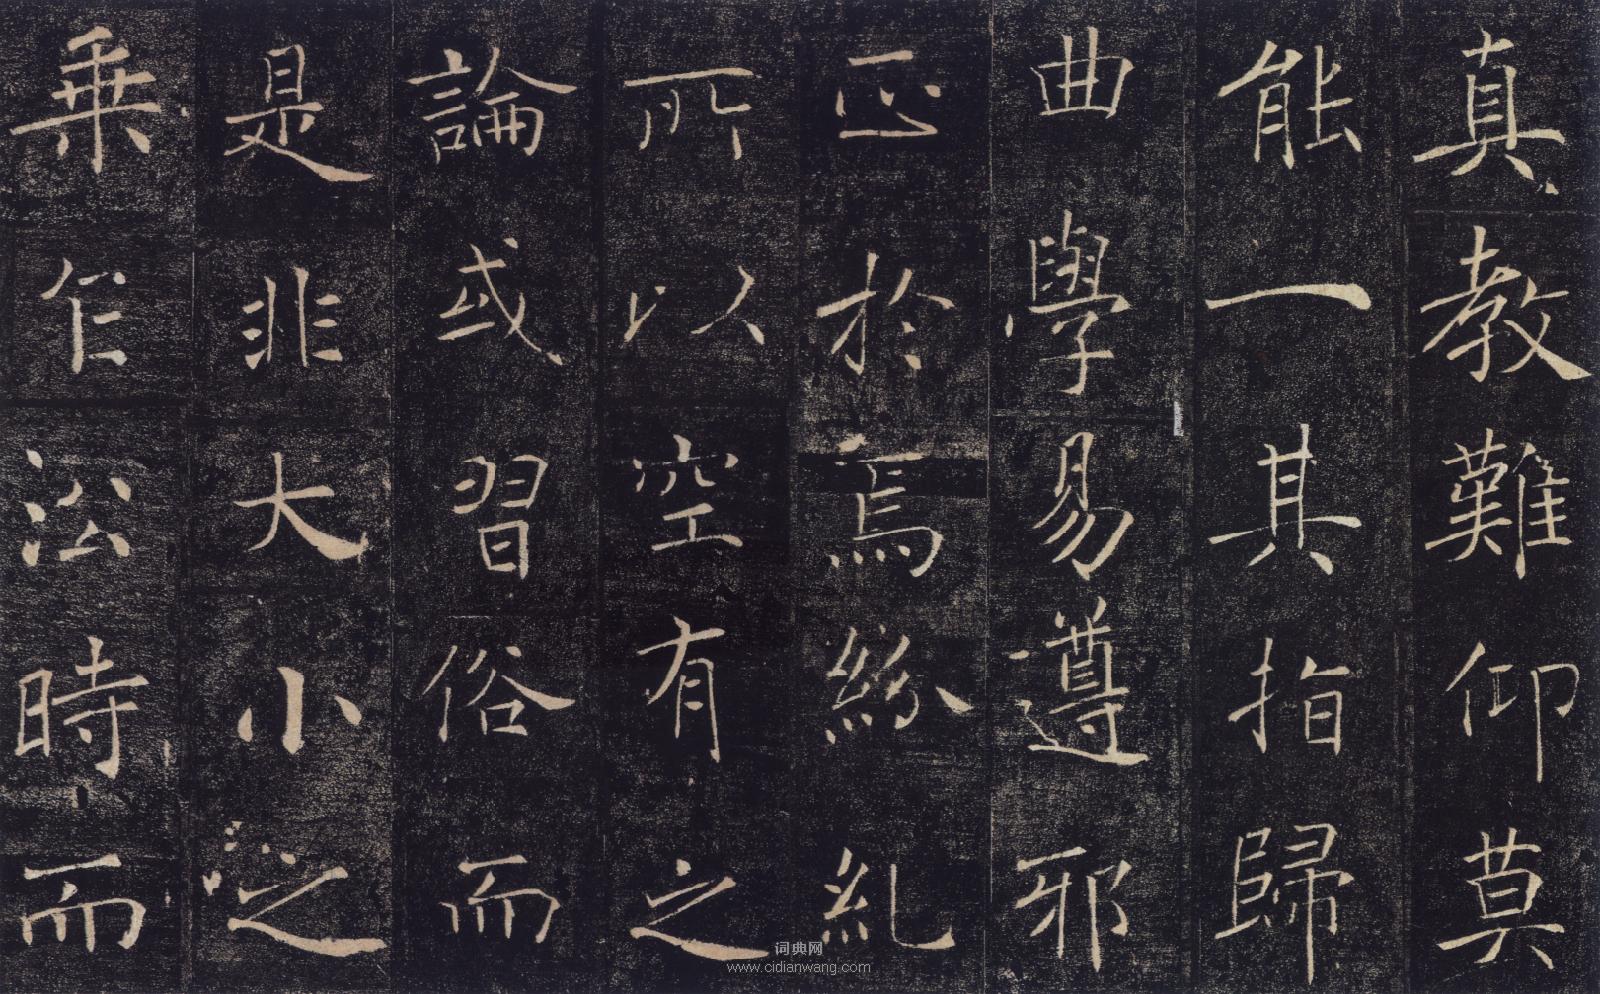 真教難仰莫
能一其指歸
曲學易遵邪
正於焉紛糺
所以空有之
論或習俗而
是非大小之
乗乍㳂時而
词典网
www.cidianwang.com